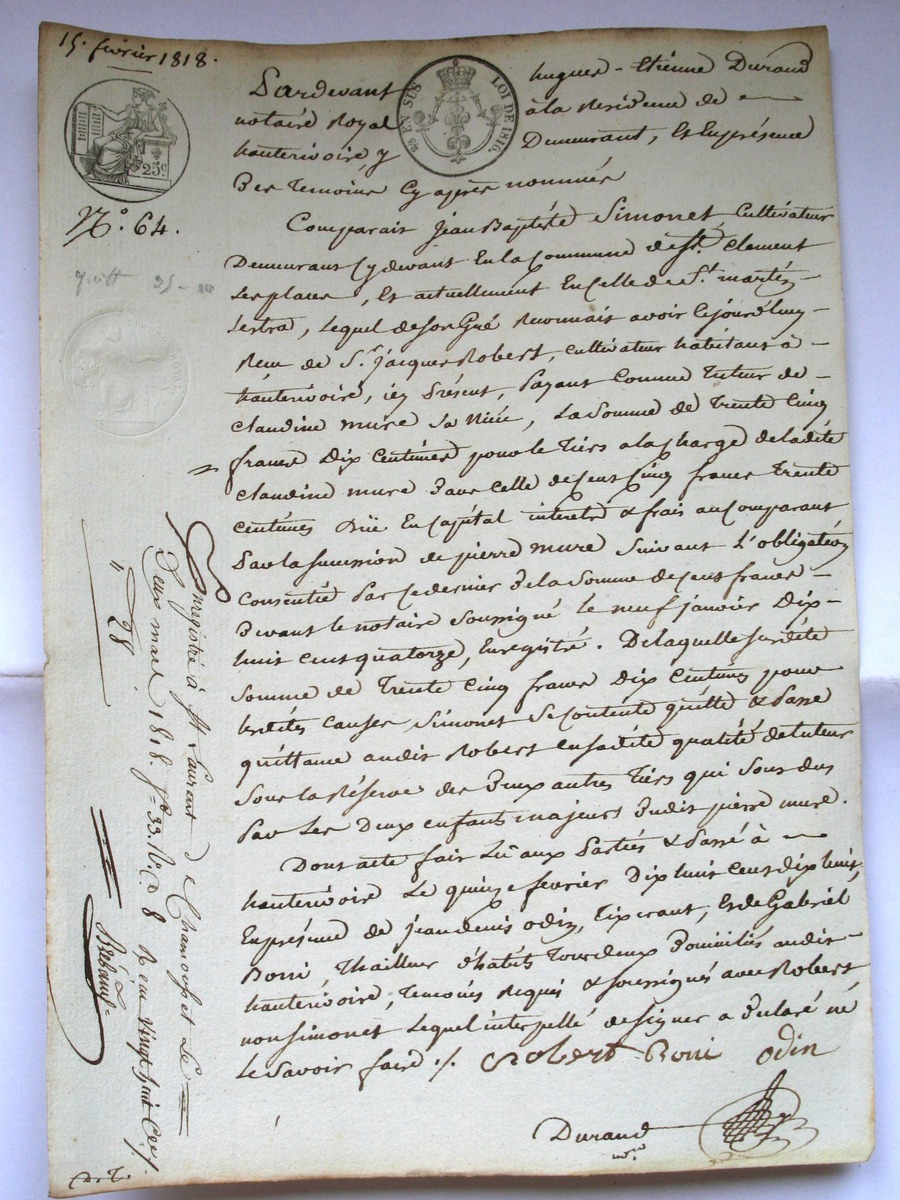 15. février 1818.
Pardevant hugues - Etiénne Durand
notaire Royal à la Residence de
hauterivoire, y Demeurant, Et Enprésence
Des Temoins Cy après nommés
25c
⁵⁄₁₀ EN SUS LOI DE 1816.
N.º 64.
Comparait Jean Baptiste Simonet Cultivateur
Demeurant Cy devant En la Commune de St. Clement
Les places, Et actuellement En Celle de St. martin
Lestra, Lequel de son Gré Reconnait avoir Cejourd'huy
Recu de Sr. Jacques Robert, Cultivateur habitant à
hauterivoire, icy Présent, Payant Comme Tuteur de
Claudine mure Sa Niéce, La Somme de Trente Cinq
francs Dix Centimes pour le Tiers a la Charge de ladite
Claudine mure Dans Celle de Cent Cinq francs Trente
Centimes Düe En Capital interets & frais au Comparant
Par la Succession de pierre mure Suivant L'obligation
Consentie Par Ce dernier De la Somme de Cent francs
Devant le notaire Soussigné le neuf janvier Dix-
huit Cent quatorze, Enregistré. De laquelle Susdite
Somme de Trente Cinq francs Dix Centimes pour
Lesdites Causes Simonet Se Contente quitte & Passe
quittance audit Robert En sadite qualité de tuteur
Sous la Réserve des Deux autres Tiers qui Sont dus
Par Les Deux enfants majeurs Dudit pierre mure.
Dont acte fait Lû aux Parties & Passé à
hauterivoire Le quinze fevrier Dix huit Cent dix huit,
En présence de jean denis odin, Tixerant, Et de Gabriel
Boni Thailleur d'habits Tous deux Domiciliés audit
hauterivoire, Temoins Requis & Soussignés avec Robert
non Simonet Lequel interpellé de signer a Declaré ne
Le Savoir faire ./.
Robert Boni odin
Durand
Enregistré à St Laurent de Chamousset Le
Deux mars 1818. fº 33. Rº. C. 8 Recu Vingt huit Cent
" 28
D. T.